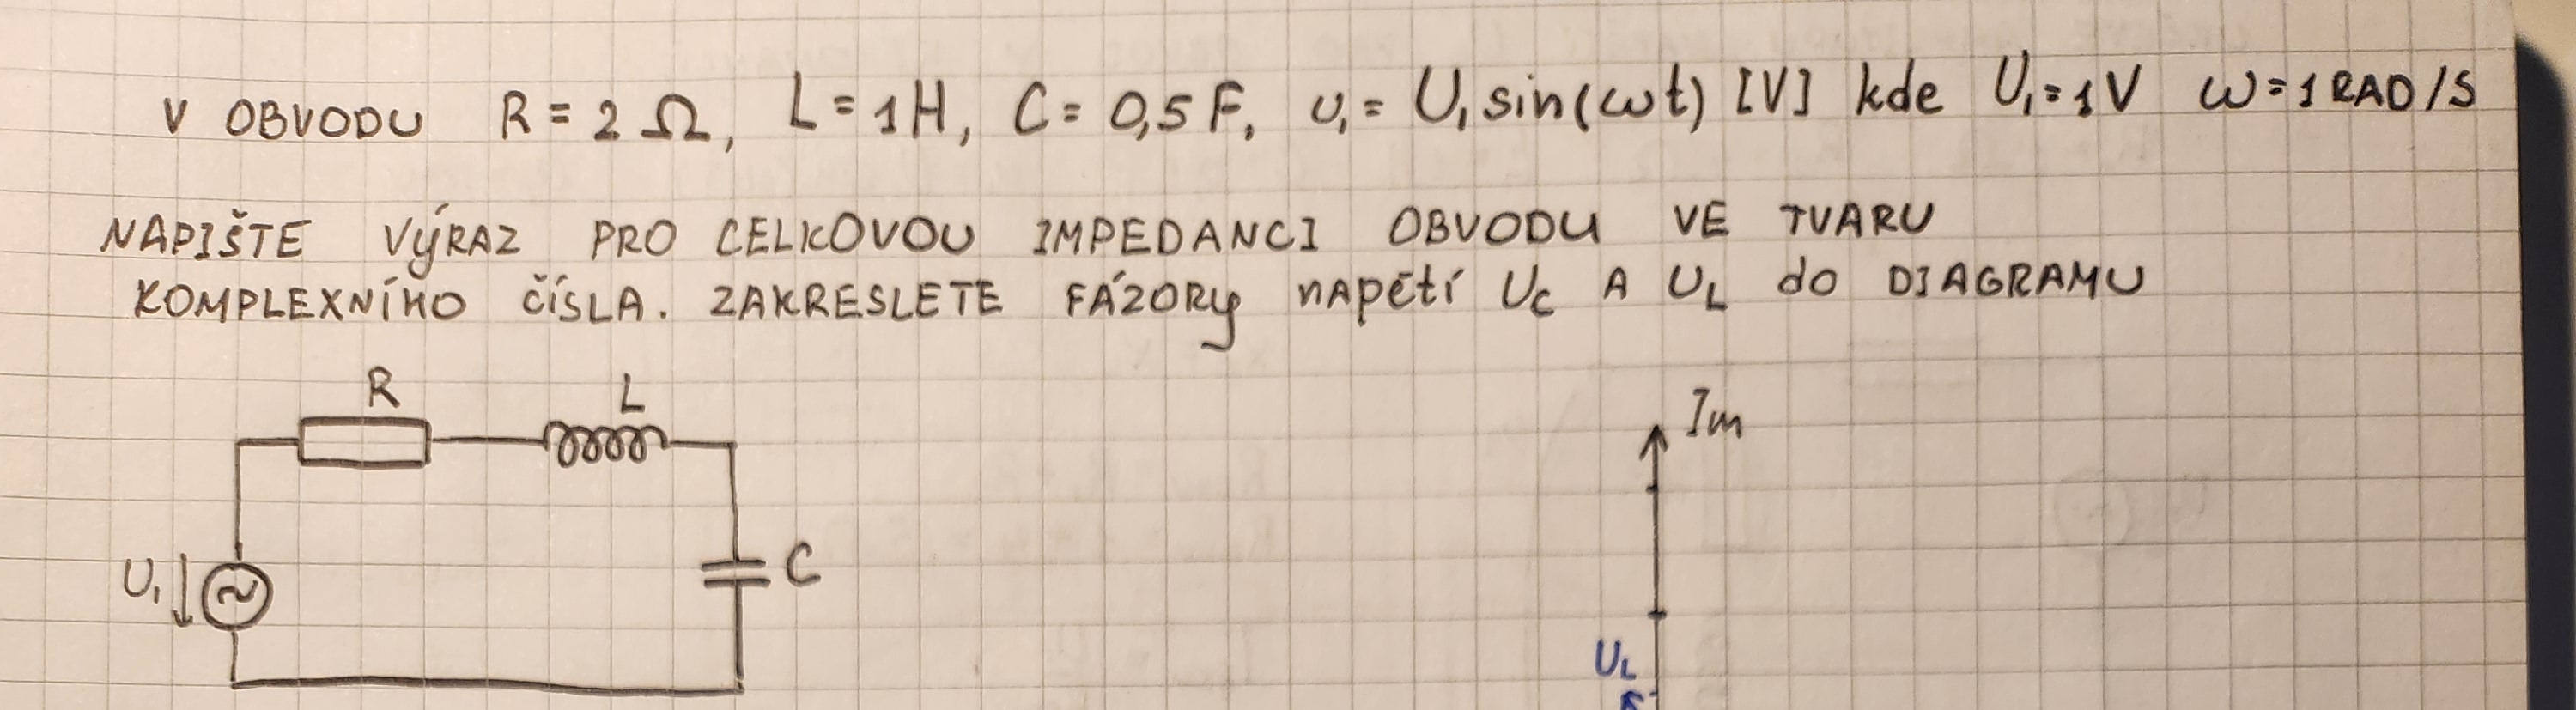 V OBVODU R = 2 Ω, L = 1H, C = 0,5 F, u₁ = U₁ sin(ωt) [V] kde U₁ = 1V ω = 1 RAD/S
NAPIŠTE VÝRAZ PRO CELKOVOU IMPEDANCI OBVODU VE TVARU
KOMPLEXNÍHO ČÍSLA. ZAKRESLETE FÁZORY napětí U_C A U_L do DIAGRAMU
R
L
Im
U₁
C
U_L